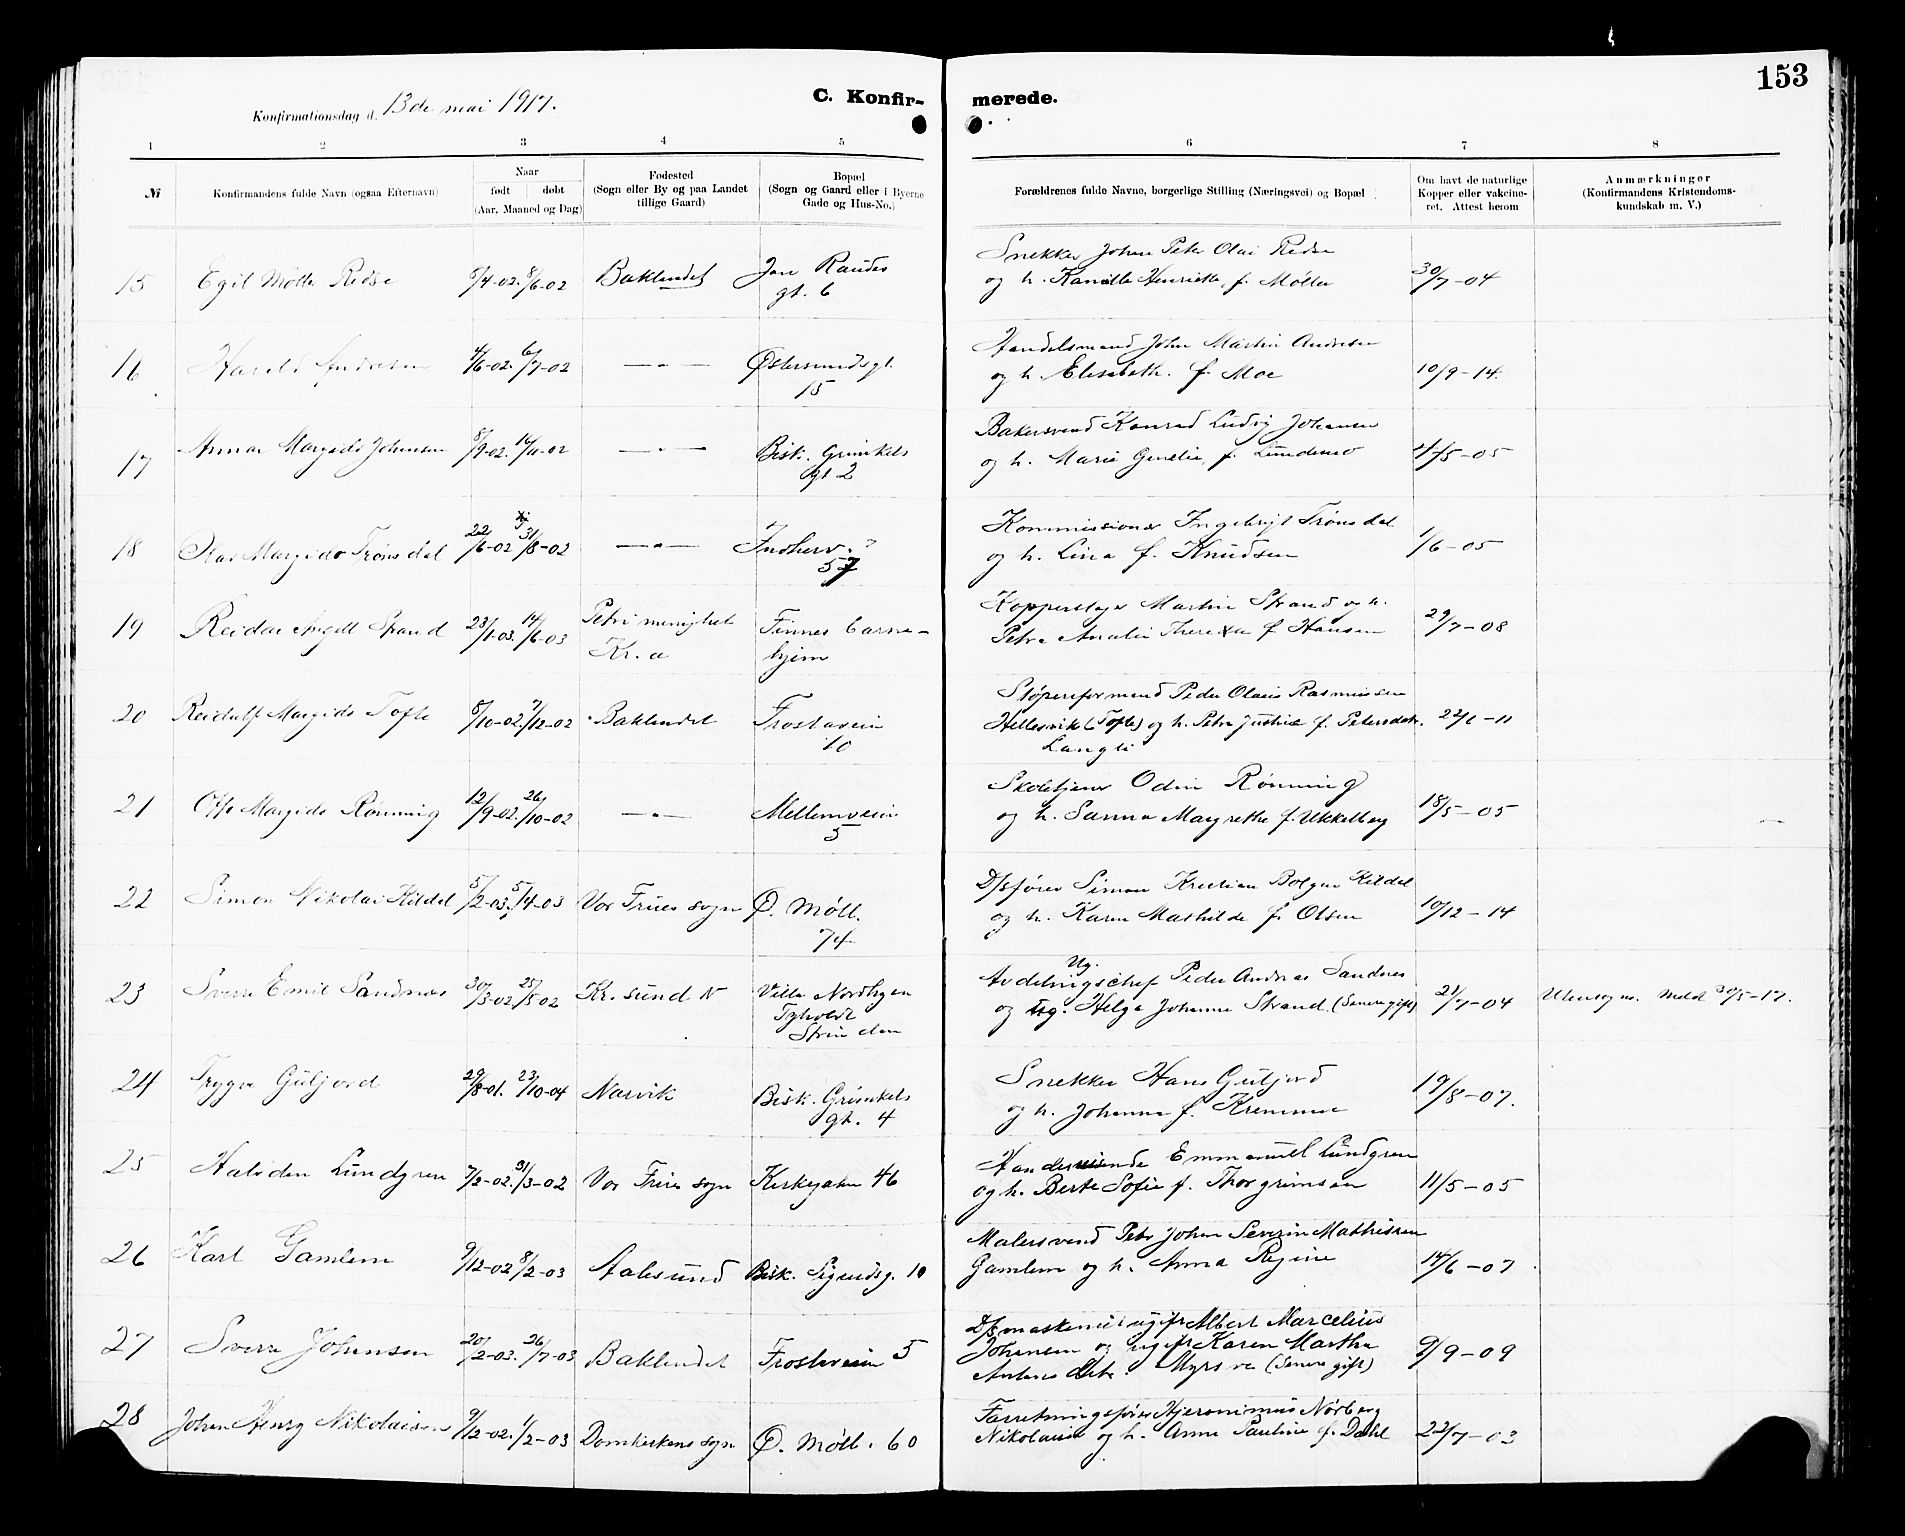 153
Konfirmationsdag d. 13de mai 1917.
C. Konfir-
merede.
1 2 3 4 5 6 7 8
№
Konfirmandens fulde Navn (ogsaa Efternavn)
Naar
født døbt
(Aar, Maaned og Dag)
Fødested
(Sogn eller By og paa Landet
tillige Gaard)
Bopæl
(Sogn og Gaard eller i Byerne
Gade og Hus-No.)
Forældrenes fulde Navne, borgerlige Stilling (Næringsvei) og Bopæl
Om havt de naturlige
Kopper eller vakcine-
ret. Attest herom
Anmærkninger
(Konfirmandens Kristendoms-
kundskab m. V.)
15 Egil Møller Redse 5/4-02. 8/6-02 Baklandet Jon Raudes
gt. 6
Snekker Johan Peter Olai Redse
og h. Kamilla Henriette, f. Møller 30/7-04
16 Harald Andresen 4/6-02. 6/7-02 —〃— Østersundsgt.
15
Handelsmand John Martin Andresen
og h. Elisabeth. f. Moe 10/9-14.
17 Margido Johansen 8/9-02. 16/11-02 —〃— Bisk. Grimkels
gt 2
Bakersvend Konrad Ludvig Johansen
og h. Marie f. 4/5-05
18 Olav Margido Trønsdal 22/6-02 31/8-02 —〃— Indherv.
57
Kommissionær Ingebrigt Trønsdal
og h. Lina f. Knudsen 1/6-05
19 Reidar Angell Strand 23/1-03. 14/6-03 Petri menighet
Kr.a
Finnes barne-
hjem
Kopperslager Martin Strand og h.
Petra Amalie Theresia f. Hansen 29/7-08
20 Reidulf Margido Tofte 5/10-02. 7/12-02 Baklandet Frostaveien
10
Støperiformand Peder Olaus Rasmussen
Hellesvik (Tofte) og h. Petra Justine f. Petersdatr.
Langli
22/1-11
21 Margido Rønning 12/9-02. 26/10-02 —〃— Mellemveien
5
Skoletjener Odin Rønning
og h. Sanna Margrethe f. Ukkelberg 18/5-05
22 Simon Nikolai Kildal 5/2-03. 5/4-03 Vor Frues sogn Ø. Møll.
74
D/sfører Simon Kristian Kildal
og h. Karen Mathilde f. Olsen 10/12-14
23 Sverre Emil Sandnæs 30/3-02. 25/5-02 Kr.sund N Villa Nordhgen
Tyholdt
Strinden
Ug.
Avdelingschef Peder Andreas Sandnes
og ug. Helga Johanne Strand. (Senere gift) 21/7-04 Utensogns. Meldt 30/5-17.
24 Trygve Guljord 29/8-01. 23/10-04 Narvik Bisk. Grimkels
gt. 4
Snekker Hans Guljord
og h. Johanna f. Kremmer 19/8-07.
25 Halvdan Lundgren 7/2-02. 31/3-02 Vor Frues sogn Kirkegaten 46
Emmanuel Lundgren
og h. Berte Sofie f. Thorgrimsen 11/5-05
26 Karl Gamlem 9/12-02 8/2-03 Aalesund Bisk. Sigurdsg. 10
Malersvend Peter Johan Severin Mathissen
Gamlem og h. Anna Regine 14/6-07
27 Sverre Johansen 20/2-03. 26/7-03 Baklandet Frostaveien 5
D/s maskinist ugift Albert Marcelius
Johansen og ugift Karen Martha
Andersdtr. Myrsve (Senere gift) 9/9-09
28 Johan Henry Nikolaisen 9/12-02. 1/2-03 Domkirkens sogn Ø. Møll. 60
Forretningsfører Hjeronimus Nørberg
Nikolaisen og h. Anna Pauline f. Dahl 22/7-03